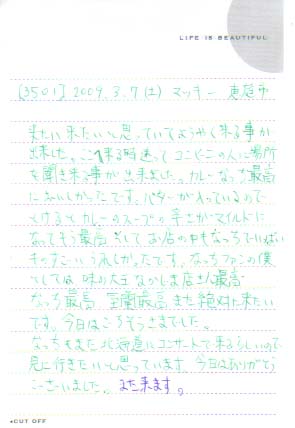 LIFE IS BEAUTIFUL
[3501] 2009.3.7(土) マッキー 恵庭市
来たい来たいと思っていてようやく来る事が
出来ました。ここ来る時迷ってコンビニの人に場所
を聞き来る事が出来ました。カレーなっち最高
においしかったです。バターが入っているので
とけるとカレーのスープの辛さがマイルドに
なってもう最高 そしてお店の中もなっちでいっぱい
ものすごいうれしかったです。なっちファンの僕
としては 味の大王 なかじま店さん最高
なっち最高 室蘭最高 また絶対に来たい
です。今日はごちそうさまでした。
なっちもまた北海道にコンサートで来るらしいので
見に行きたいと思っています。今日はありがとう
ございました。また来ます。
CUT OFF